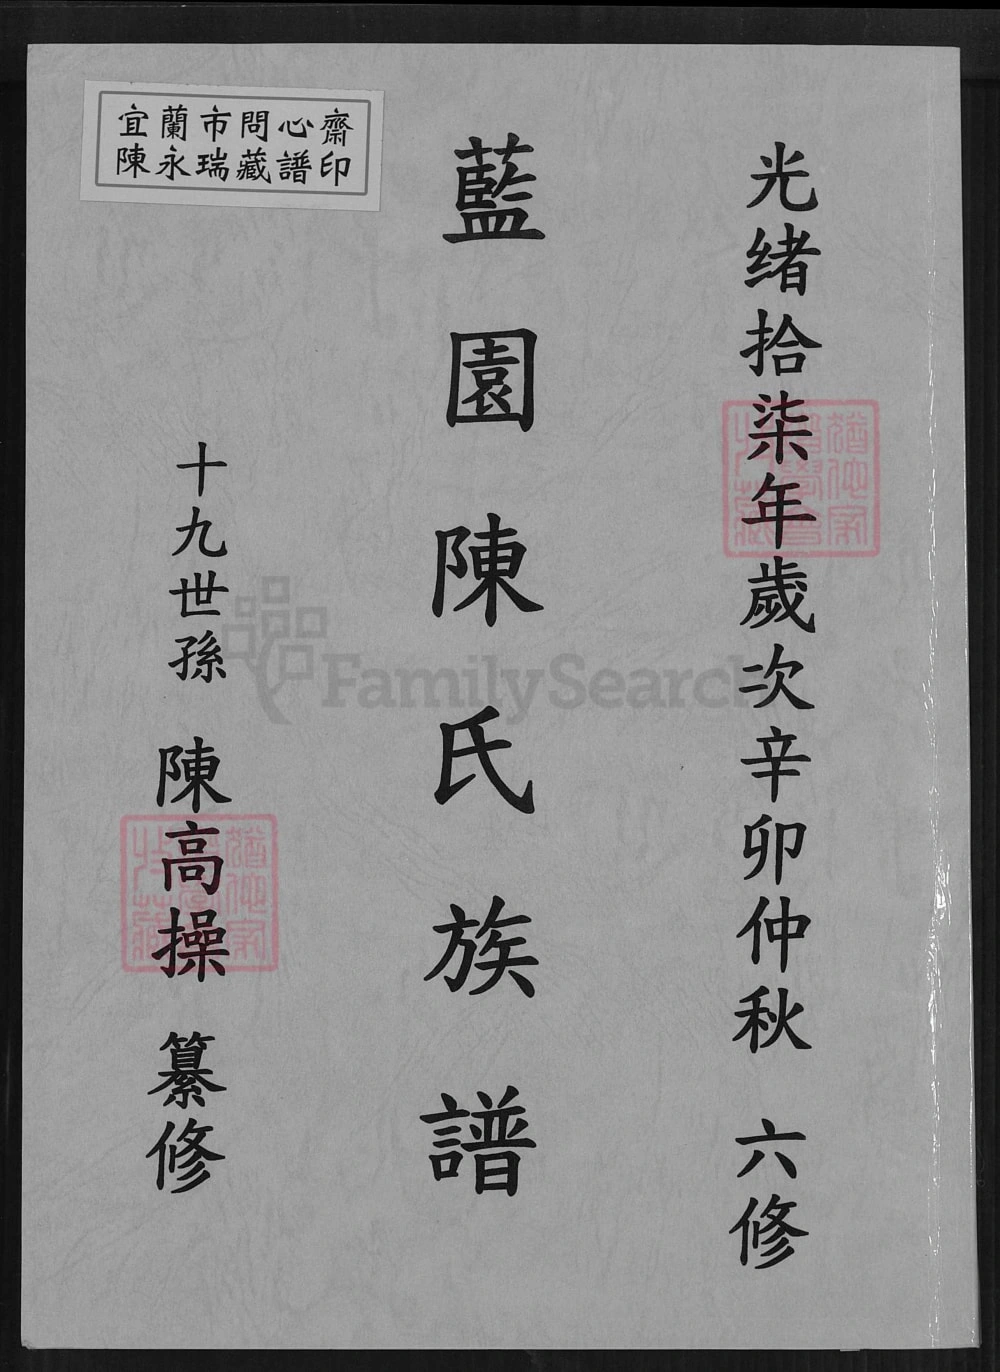 宜蘭市問心齋
陳永瑞藏譜印
光绪拾柒年歲次辛卯仲秋 六修
藍園陳氏族譜
十九世孫 陳高操 纂修
FamilySearch